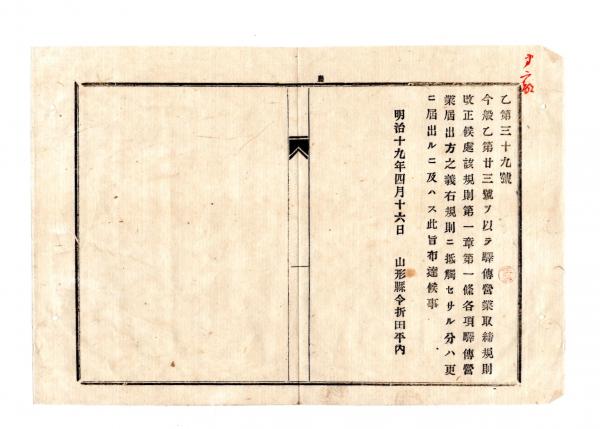 乙第三十九號
今般乙第廿三號ヲ以テ驛傳營業取締規則
改正候處該規則第一章第一條各項驛傳營
業屆出方之義右規則ニ抵觸セサル分ハ更
ニ屆出ルニ及ハス此旨布達候事
明治十九年四月十六日 山形縣令折田平內